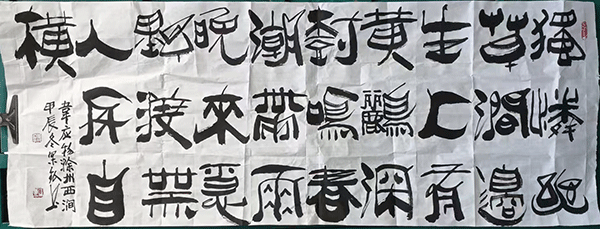 獨憐幽
草澗邊
生上有
黃鸝深
樹鳴春
潮帶雨
晚來急
野渡無
人舟自
橫
韋應物滁州西澗
甲辰冬